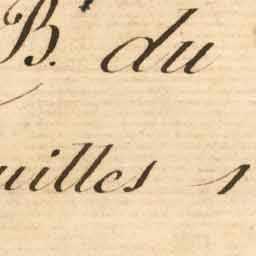 B. du
uilles